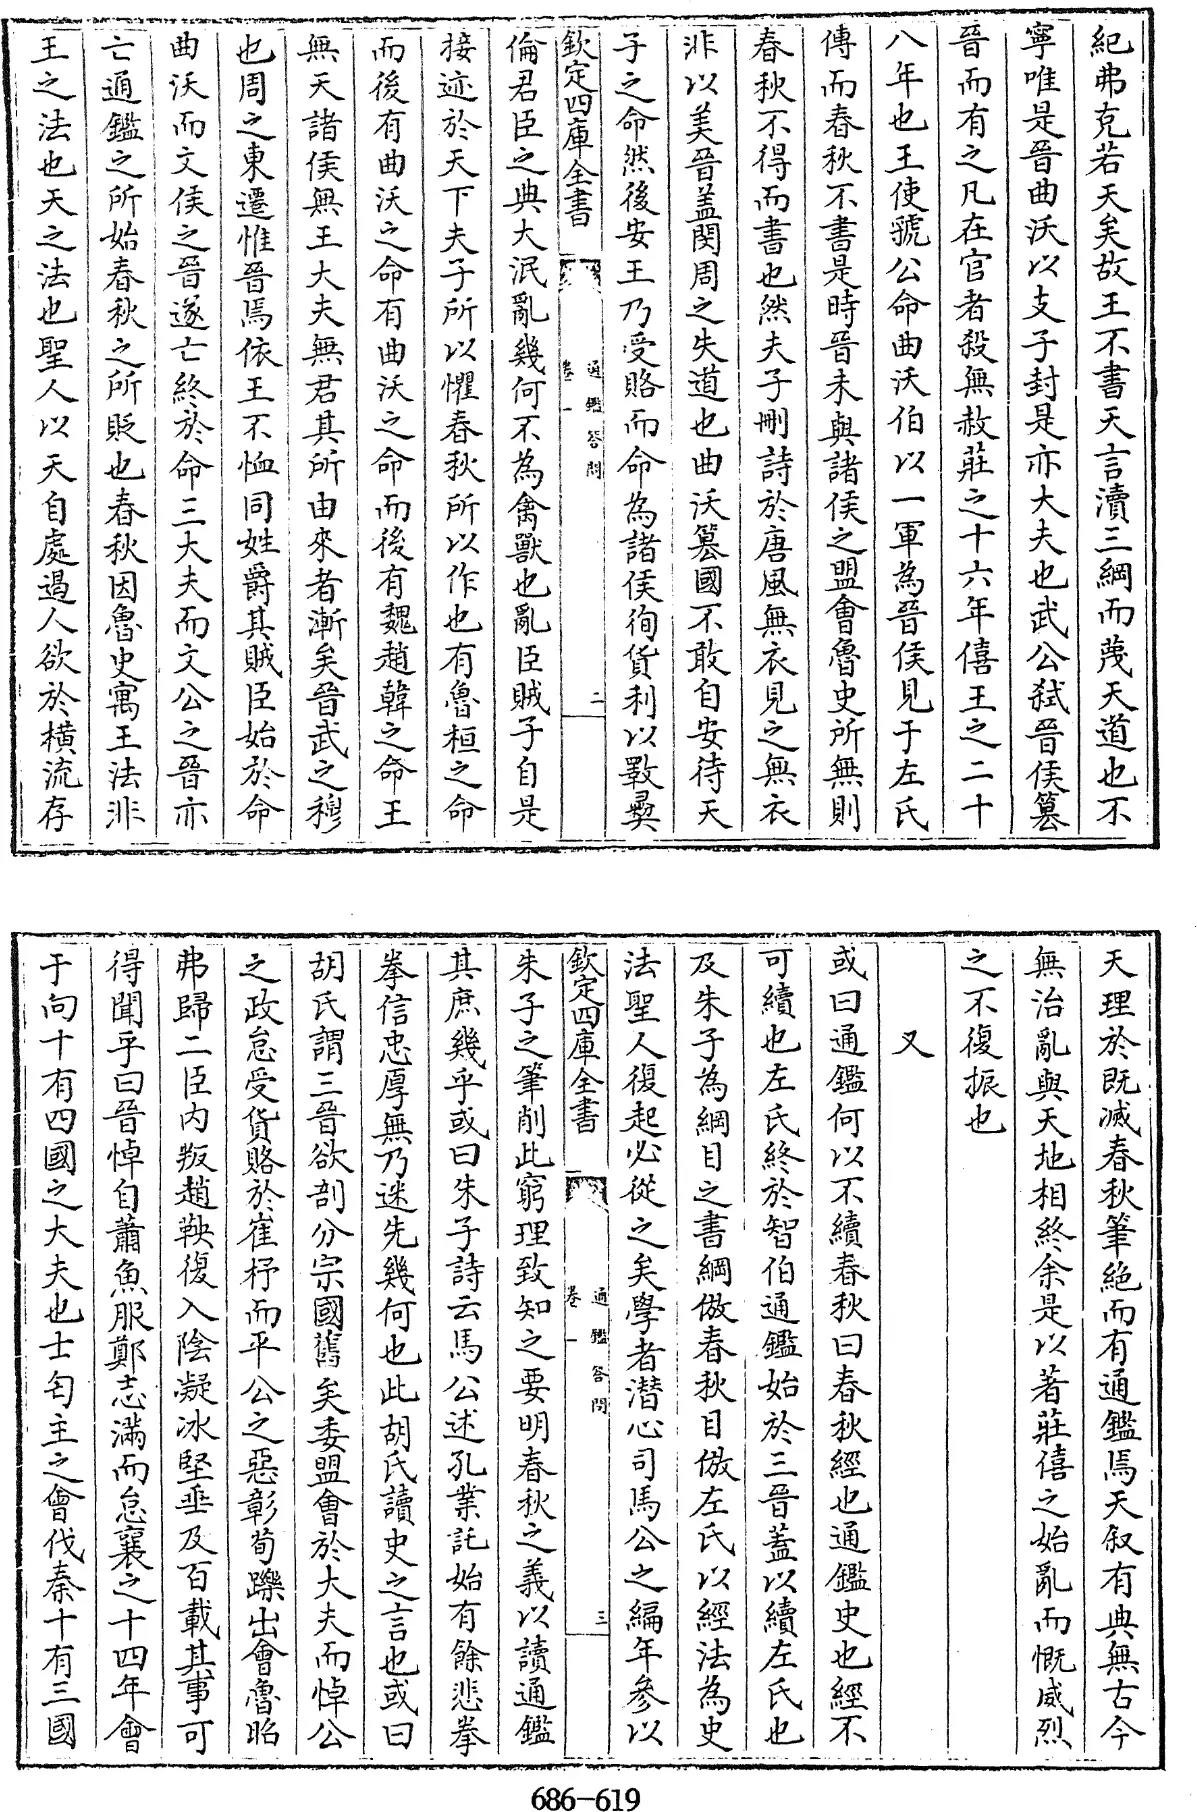 紀弗克若天矣故王不書天言瀆三綱而蔑天道也不
寧唯是晉曲沃以支子封是亦大夫也武公弑晉侯簒
晉而有之凡在官者殺無赦莊之十六年僖王之二十
八年也王使虢公命曲沃伯以一軍為晉侯見于左氏
傳而春秋不書是時晉未與諸侯之盟會魯史所無則
春秋不得而書也然夫子刪詩於唐風無衣見之無衣
非以美晉盖閔周之失道也曲沃簒國不敢自安待天
子之命然後安王乃受賂而命為諸侯徇貨利以斁彛
欽定四庫全書
通鑑答問
卷一
二
倫君臣之典大泯亂幾何不為禽獸也亂臣賊子自是
接迹於天下夫子所以懼春秋所以作也有魯桓之命
而後有曲沃之命有曲沃之命而後有魏趙韓之命王
無天諸侯無王大夫無君其所由來者漸矣晉武之穆
也周之東遷惟晉焉依王不恤同姓爵其賊臣始於命
曲沃而文侯之晉遂亡終於命三大夫而文公之晉亦
亡通鑑之所始春秋之所貶也春秋因魯史寓王法非
王之法也天之法也聖人以天自處遏人欲於橫流存
天理於既滅春秋筆絶而有通鑑焉天叙有典無古今
無治亂與天地相終余是以著莊僖之始亂而慨威烈
之不復振也
又
或曰通鑑何以不續春秋曰春秋經也通鑑史也經不
可續也左氏終於智伯通鑑始於三晉蓋以續左氏也
及朱子為綱目之書綱倣春秋目倣左氏以經法為史
法聖人復起必從之矣學者潛心司馬公之編年參以
欽定四庫全書
通鑑答問
卷一
三
朱子之筆削此窮理致知之要明春秋之義以讀通鑑
其庶幾乎或曰朱子詩云馬公述孔業託始有餘悲拳
拳信忠厚無乃迷先幾何也此胡氏讀史之言也或曰
胡氏謂三晉欲剖分宗國舊矣委盟會於大夫而悼公
之政怠受貨賂於崔杼而平公之惡彰荀躒出會魯昭
弗歸二臣内叛趙鞅復入陰凝冰堅垂及百載其事可
得聞乎曰晉悼自蕭魚服鄭志滿而怠襄之十四年會
于向十有四國之大夫也士匄主之會伐秦十有三國
686-619